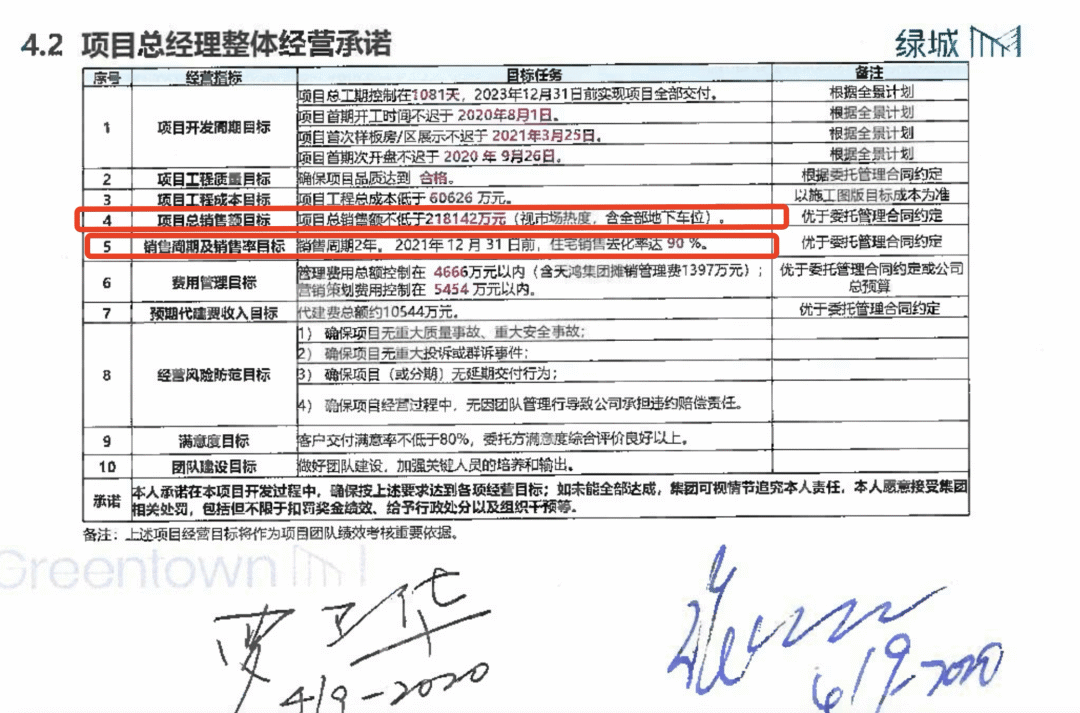 4.2 项目总经理整体经营承诺
绿城
序号 经营指标 目标任务 备注
1 项目开发周期目标
项目总工期控制在1081天，2023年12月31日前实现项目全部交付。 根据全景计划
项目首期开工时间不迟于 2020年8月1日。 根据全景计划
项目首次样板房/区展示不迟于 2021年3月25日。 根据全景计划
项目首期次开盘不迟于 2020 年 9月26日。 根据全景计划
2 项目工程质量目标 确保项目品质达到 合格。 根据委托管理合同约定
3 项目工程成本目标 项目工程总成本低于 60626 万元。 以施工图版目标成本为准
4 项目总销售额目标 项目总销售额不低于218142万元（视市场热度，含全部地下车位）。 优于委托管理合同约定
5 销售周期及销售率目标 销售周期2年。 2021年 12 月 31 日前，住宅销售去化率达 90 %。 优于委托管理合同约定
6 费用管理目标
管理费用总额控制在 4666万元以内（含天鸿集团摊销管理费1397万元）；
营销策划费用控制在 5454 万元以内。
优于委托管理合同约定或公司
总预算
7 预期代建费收入目标 代建费总额约10544万元。 优于委托管理合同约定
8 经营风险防范目标
1） 确保项目无重大质量事故、重大安全事故；
2） 确保项目无重大投诉或群诉事件；
3） 确保项目（或分期）无延期交付行为；
4） 确保项目经营过程中，无因团队管理行导致公司承担违约赔偿责任。
9 满意度目标 客户交付满意率不低于80%，委托方满意度综合评价良好以上。
10 团队建设目标 做好团队建设，加强关键人员的培养和输出。
承诺
本人承诺在本项目开发过程中，确保按上述要求达到各项经营目标；如未能全部达成，集团可视情节追究本人责任，本人愿意接受集团
相关处罚，包括但不限于扣罚奖金绩效、给予行政处分以及组织干预等。
备注：上述项目经营目标将作为项目团队绩效考核重要依据。
Greentown
4/9-2020
6/9-2020